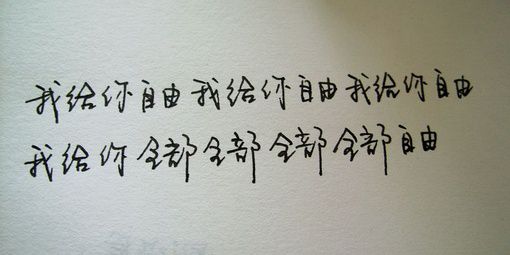 我给你自由我给你自由我给你自由
我给你全部全部全部全部自由